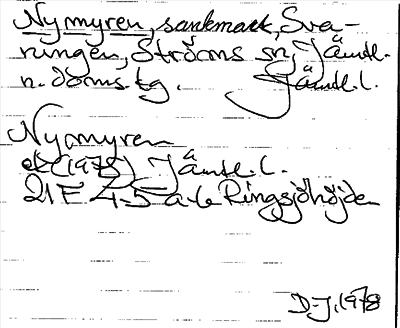 Nymyren, sankmark, Sva-
ningen, Ströms sn, Jämtl.
n. doms. tg. Jämtl. l.
Nymyren
ek (1975) Jämtl. l.
21 F 4-5 a-b Ringsjöhöjden
D-J, 1978